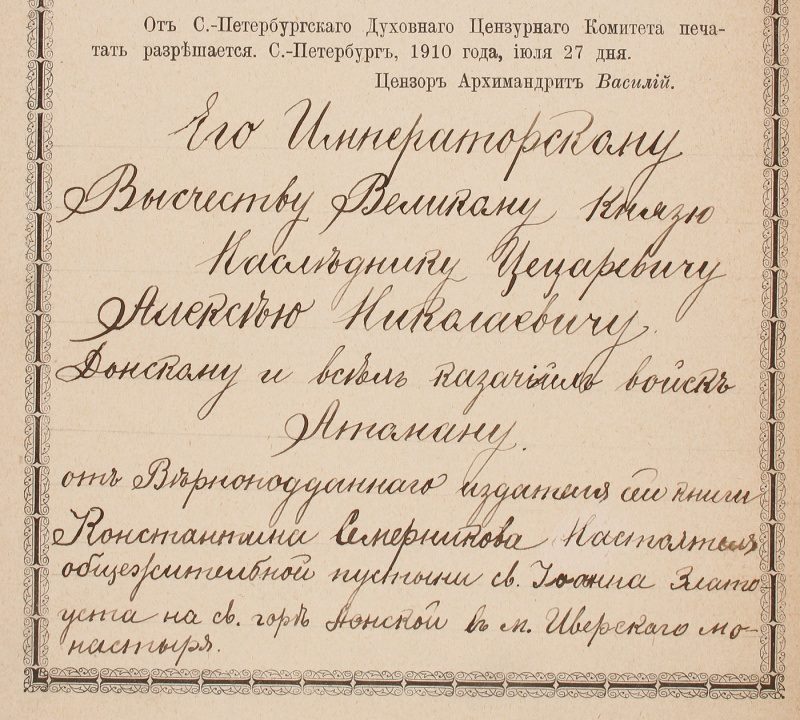 Отъ С.-Петербургскаго Духовнаго Цензурнаго Комитета печа-
тать разрѣшается. С.-Петербургъ, 1910 года, іюля 27 дня.
Цензоръ Архимандритъ Василій.
Его Императорскому
Высчеству Великому Князю
Наслѣднику Цецаревичу
Алексѣю Николаевичу.
Донскому и всѣмъ казачіймъ войскъ
Атаману.
отъ Вѣрноподданнаго издателя сей книги
Константина Семерникова Настоятеля
общежителбной пустыни св. Іоанна Злато-
уста на св. горѣ Аѳонской въ м. Иверскаго мо-
настыря.